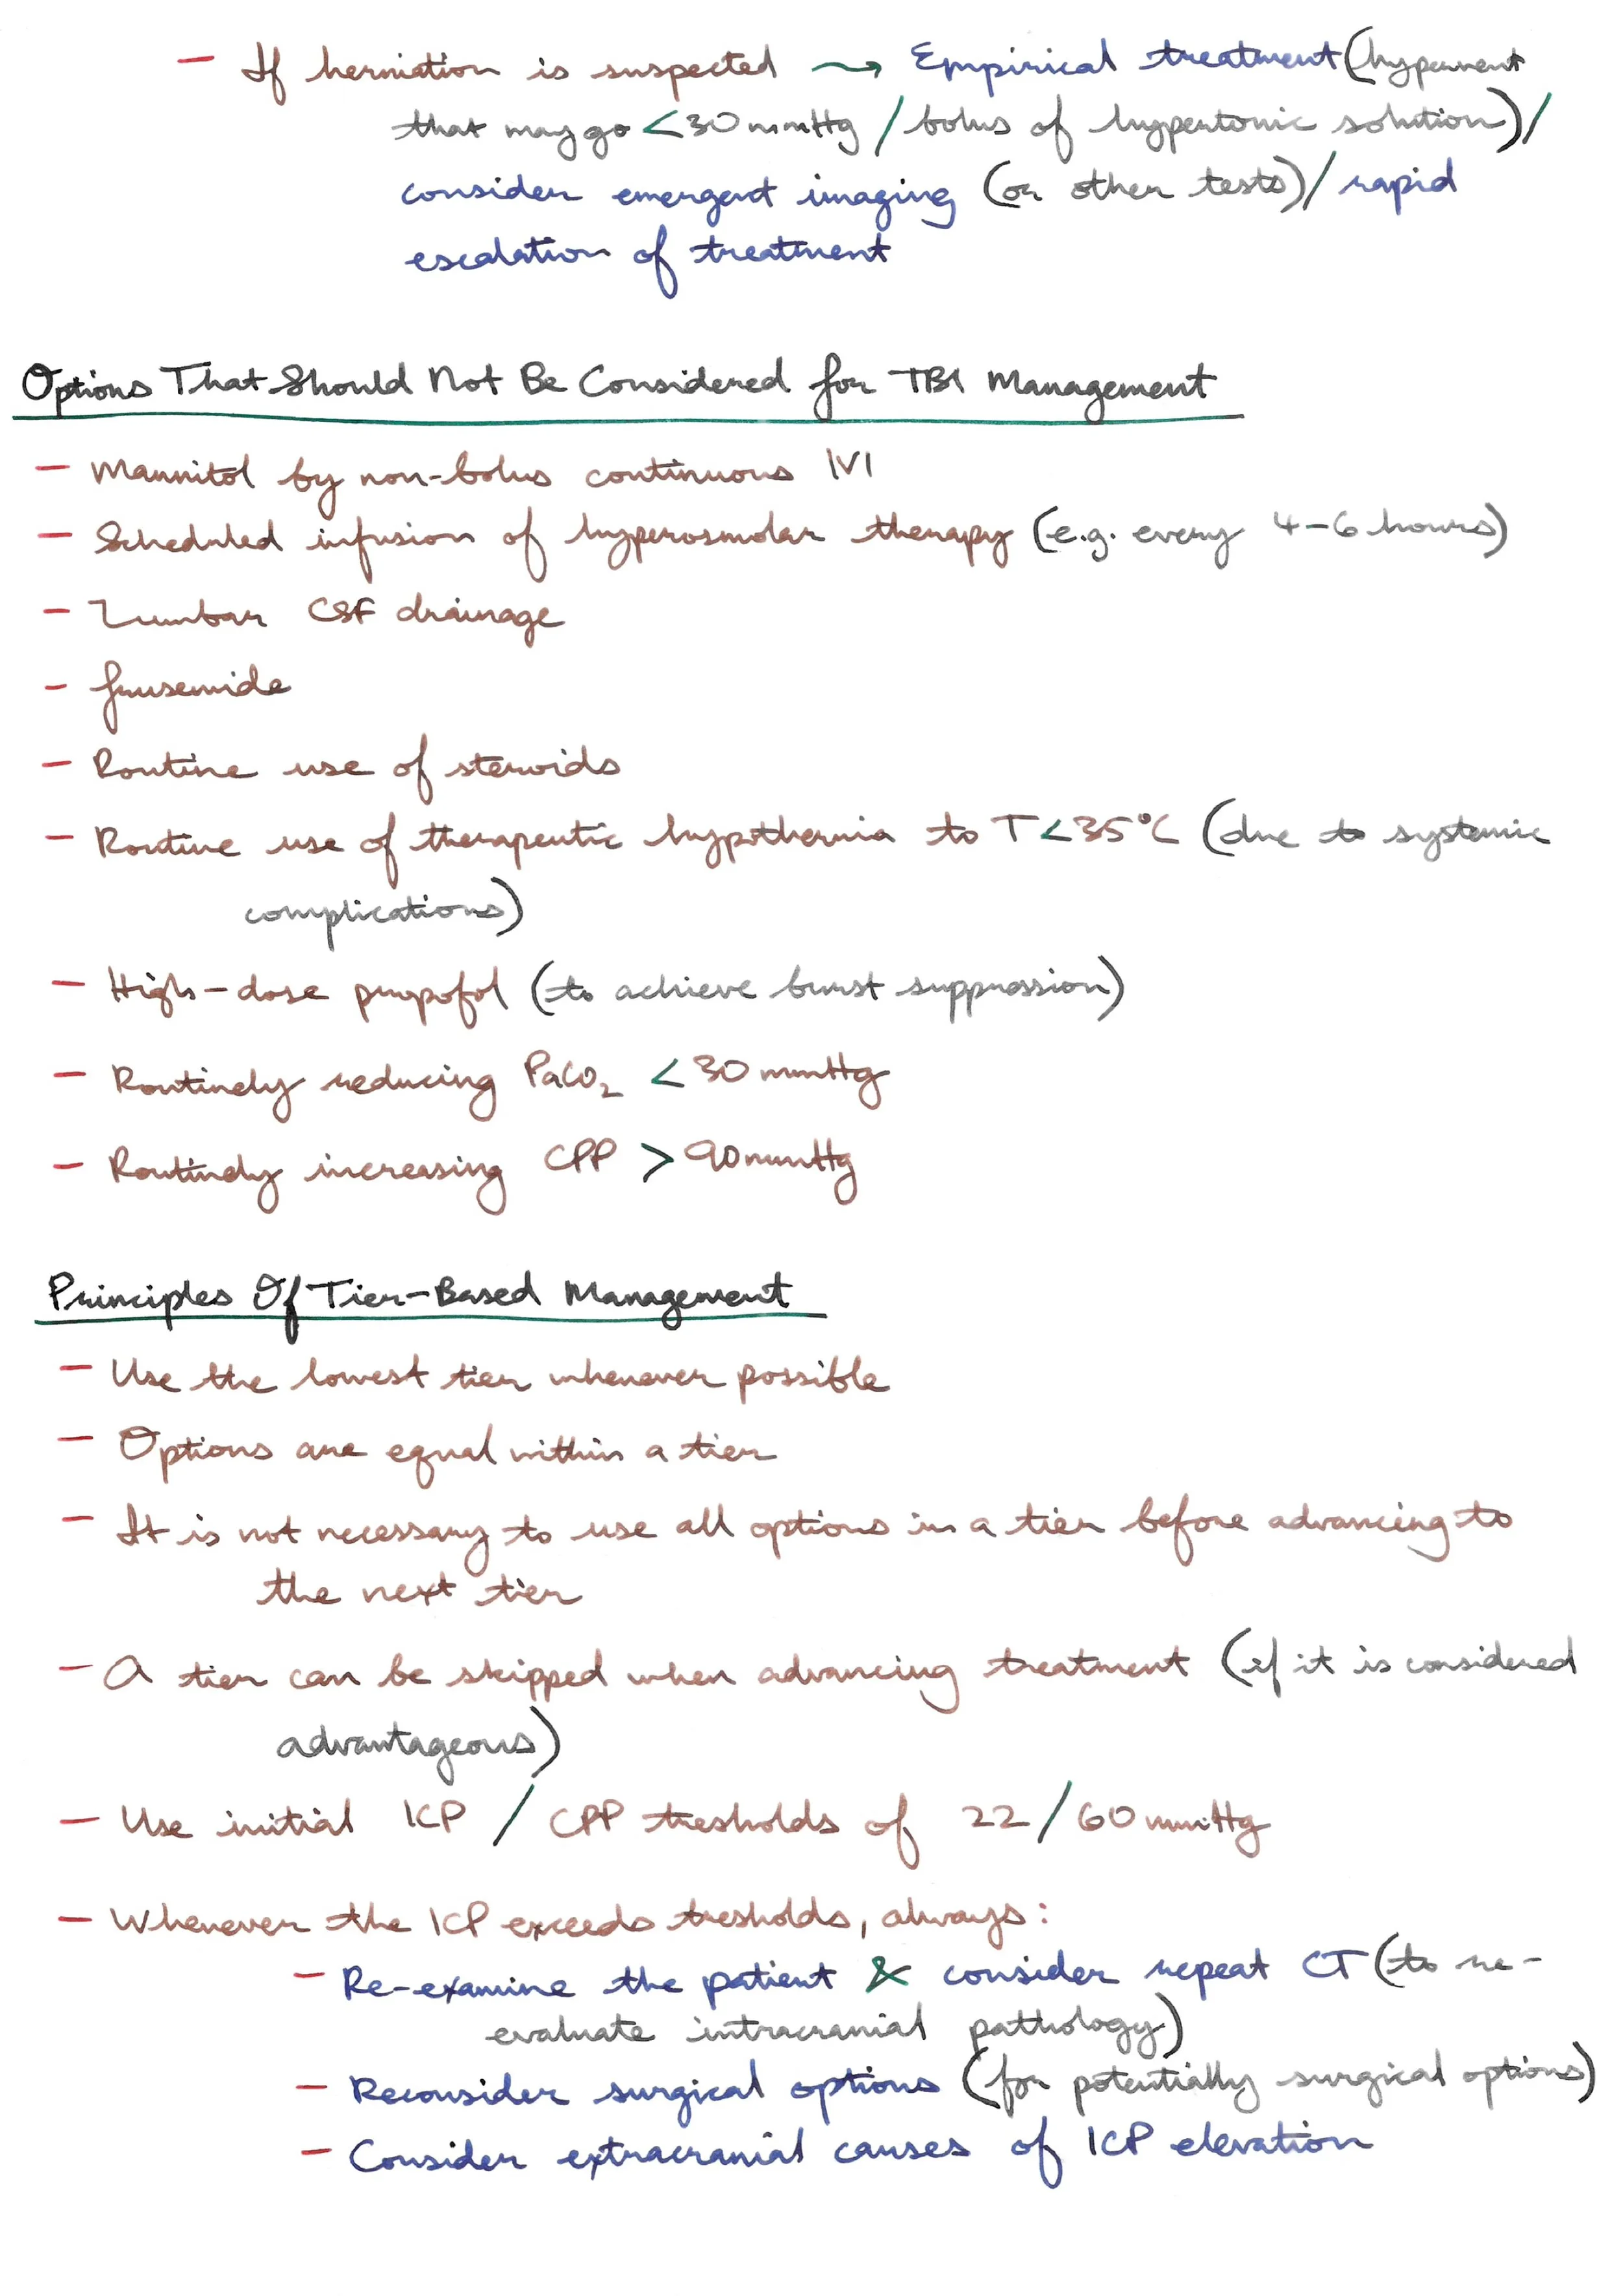 - If herniation is suspected → Empirical treatment (hypervent
that may go <30mmHg / bolus of hypertonic solution) /
consider emergent imaging (or other tests) / rapid
escalation of treatment
Options That Should Not Be Considered for TBI Management
- Mannitol by non-bolus continuous IVI
- Scheduled infusion of hyperosmolar therapy (e.g. every 4-6 hours)
- Lumbar CSF drainage
- furosemide
- Routine use of steroids
- Routine use of therapeutic hypothermia to T<35°C (due to systemic
complications)
- High-dose propofol (to achieve burst suppression)
- Routinely reducing PaCO2 <30mmHg
- Routinely increasing CPP >90mmHg
Principles Of Tier-Based Management
- Use the lowest tier whenever possible
- Options are equal within a tier
- It is not necessary to use all options in a tier before advancing to
the next tier
- A tier can be skipped when advancing treatment (if it is considered
advantageous)
- Use initial ICP / CPP tresholds of 22/60mmHg
- Whenever the ICP exceeds tresholds, always:
- Re-examine the patient & consider repeat CT (to re-
evaluate intracranial pathology)
- Reconsider surgical options (for potentially surgical options)
- Consider extracranial causes of ICP elevation